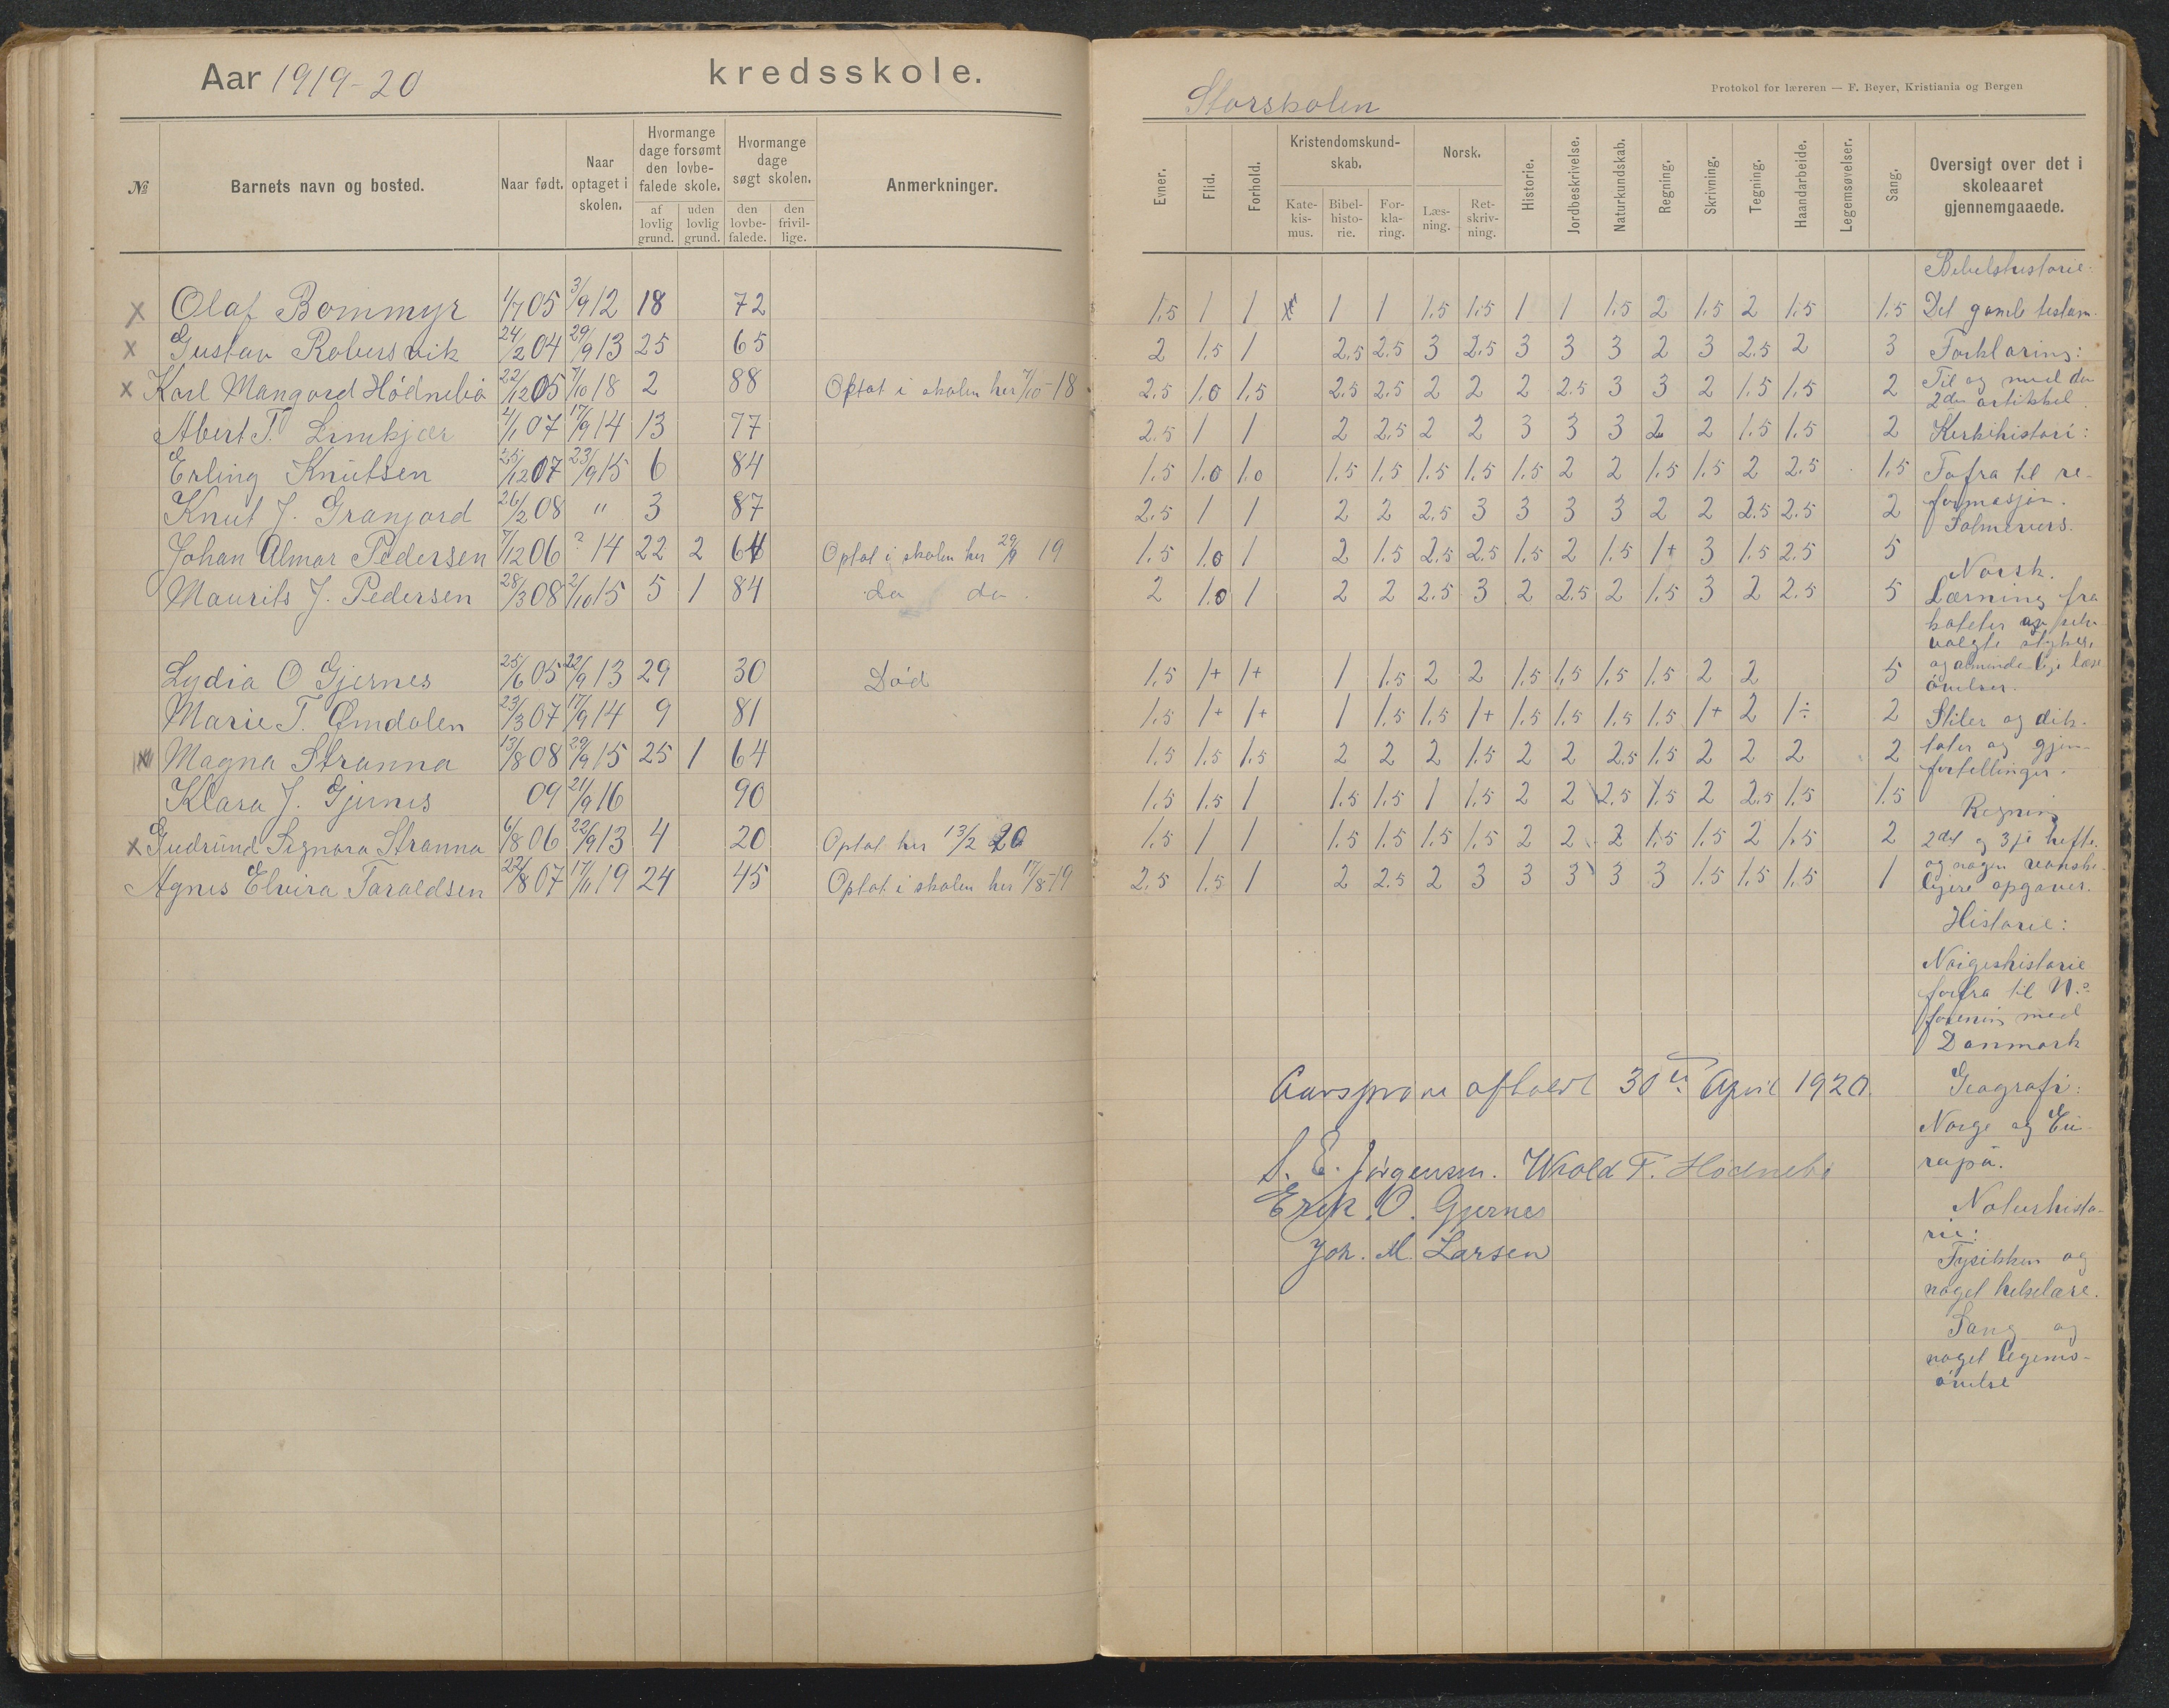 Aar 1919-20 kredsskole.
№ Barnets navn og bosted. Naar født. Naar optaget i skolen. Hvormange dage forsømt den lovbefalede skole. af lovlig grund. uden lovlig grund. Hvormange dage søgt skolen. den lovbefalede. den frivillige. Anmerkninger.
x Olaf Bommyr 1/7 05 3/9 12 18 72
x Gustav Robersvik 24/2 04 29/9 13 25 65
x Karl Mangord Hödnebö 22/12 05 7/10 18 2 88 Optat i skolen her 7/10-18
Abert T. Limkjær 4/1 07 17/9 14 13 77
Erling Knutsen 25/12 07 23/9 15 6 84
Knut J. Granjord 26/2 08 " 3 87
Johan Almar Pedersen 7/12 06 ? 14 22 2 64 Optat i skolen her 29/9 19
Maurits J. Pedersen 28/3 08 2/10 15 5 1 84 do do.
Lydia O Gjernes 25/6 05 22/9 13 29 30 Död
Marie T. Omdalen 23/3 07 17/9 14 9 81
x Magna Stranna 13/8 08 29/9 15 25 1 64
Klara J. Gjernes 09 21/9 16 90
x Gudrund Signora Stranna 6/8 06 22/9 13 4 20 Optat her 13/2 20
Agnes Elvira Taraldsen 22/8 07 17/11 19 24 45 Optat i skolen her 17/8-19
Storskolen
Protokol for læreren — F. Beyer, Kristiania og Bergen
Evner. Flid. Forhold. Kristendomskundskab. Katekismus. Bibelhistorie. Forklaring. Norsk. Læsning. Retskrivning. Historie. Jordbeskrivelse. Naturkundskab. Regning. Skrivning. Tegning. Haandarbeide. Legemsøvelser. Sang. Oversigt over det i skoleaaret gjennemgaaede.
1.5 1 1 x 1 1 1.5 1.5 1 1 1.5 2 1.5 2 1.5 1.5
2 1.5 1 2.5 2.5 3 2.5 3 3 3 2 3 2.5 2 3
2.5 1.0 1.5 2.5 2.5 2 2 2 2.5 3 3 2 1.5 1.5 2
2.5 1 1 2 2.5 2 2 3 3 3 2 2 1.5 1.5 2
1.5 1.0 1.0 1.5 1.5 1.5 1.5 1.5 2 2 1.5 1.5 2 2.5 1.5
2.5 1 1 2 2 2.5 3 3 3 3 2 2 2.5 2.5 2
1.5 1.0 1 2 1.5 2.5 2.5 1.5 2 1.5 1+ 3 1.5 2.5 5
2 1.0 1 2 2 2.5 3 2 2.5 2 1.5 3 2 2.5 5
1.5 1+ 1+ 1 1.5 2 2 1.5 1.5 1.5 1.5 2 2 5
1.5 1+ 1+ 1 1.5 1.5 1+ 1.5 1.5 1.5 1.5 1+ 2 1÷ 2
1.5 1.5 1.5 2 2 2 1.5 2 2 2.5 1.5 2 2 2 2
1.5 1.5 1 1.5 1.5 1 1.5 2 2 2.5 1.5 2 2.5 1.5 1.5
1.5 1 1 1.5 1.5 1.5 1.5 2 2 2 1.5 1.5 2 1.5 2
2.5 1.5 1 2 2.5 2 3 3 3 3 3 1.5 1.5 1.5 1
Bibelshistorie:
Det gamle testam.
Forklaring:
Til og med den
2den artikkel.
Kirkihistori:
Fofra til re-
formasjon.
Salmevers.
Norsk.
Lærning fra
valgte stykker
og almindelige læse
övelser.
Stiler og dik-
tater og gjen-
fortellinger.
Regning
2det og 3je hefte.
og nogen vanske-
ligere opgaver.
Historie:
Norgeshistorie
forfra til N.s
forening med
Danmark
Geografi:
Norge og Eu-
ropa.
Naturhisto-
rie:
Fysikken og
noget helselære.
Sang og
noget legems-
övelse
Aarsprøve afholdt 30te April 1920.
S. E. Jørgensen. Wrold T. Hødnebø
Erik O. Gjernes
Joh. M. Larsen